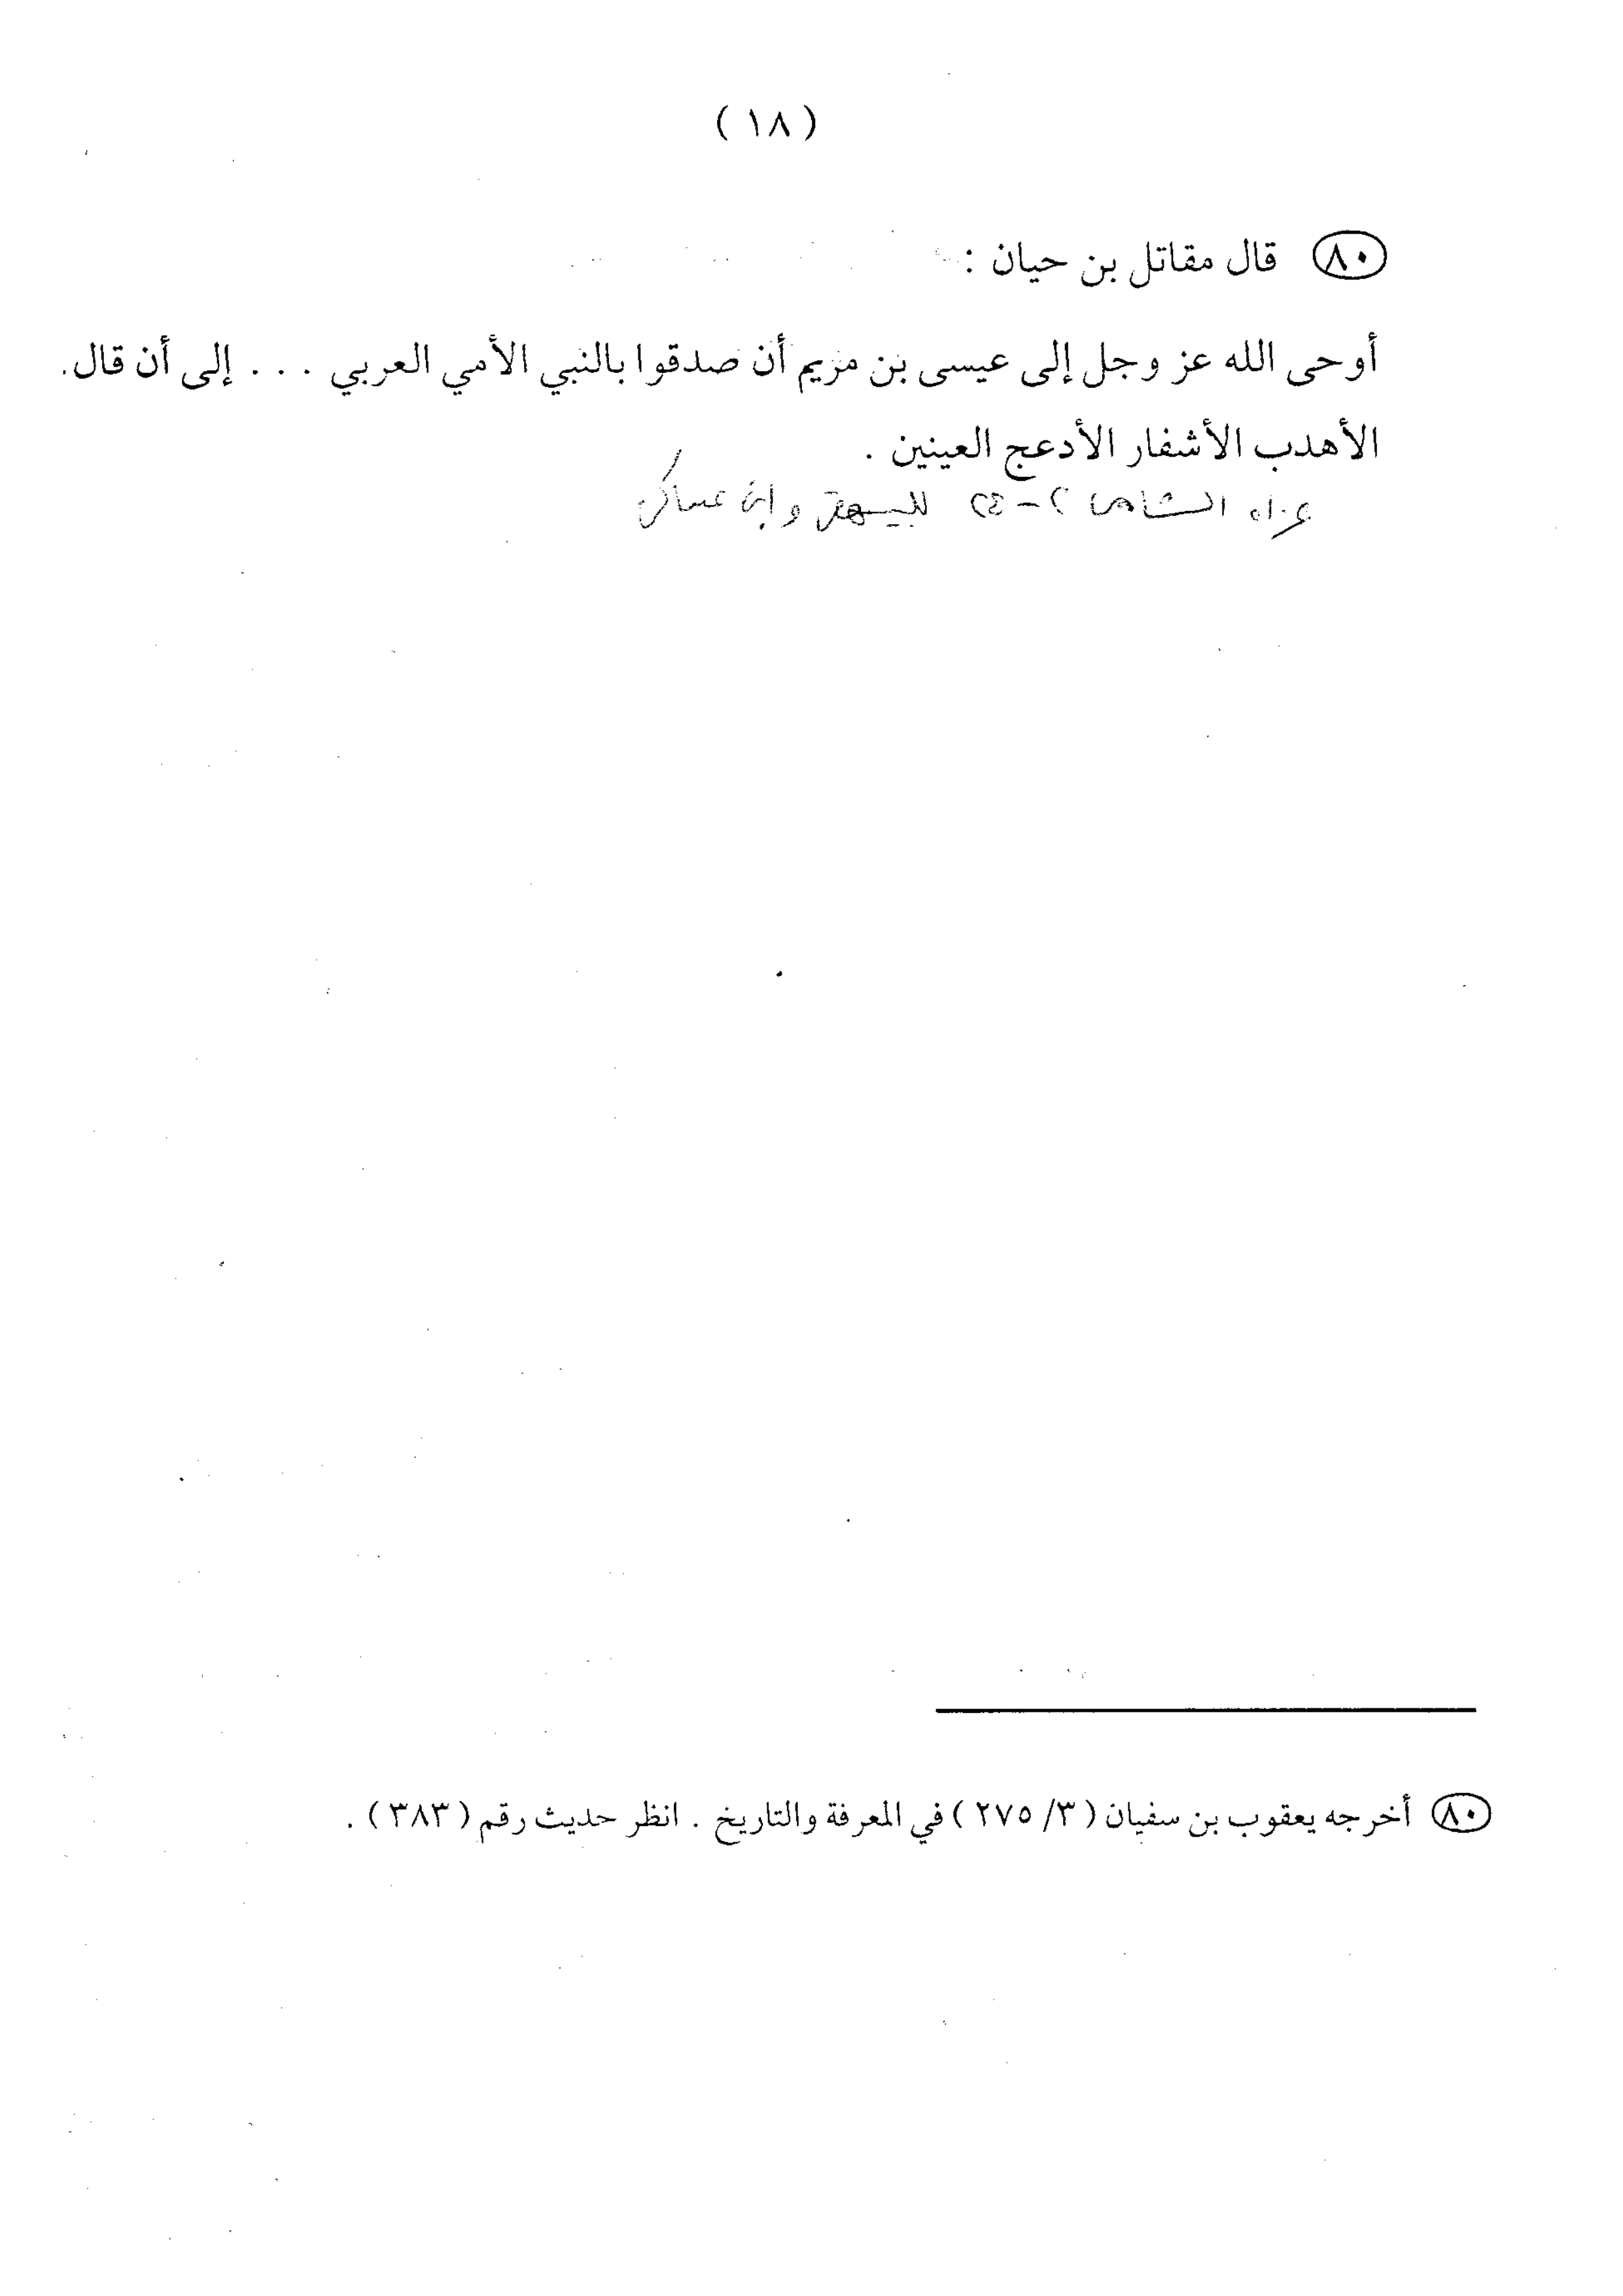 ( ١٨ )
٨٠ قال مقاتل بن حيان :
أوحى الله عز وجل إلى عيسى بن مريم أن صدقوا بالنبي الأمي العربي . . . إلى أن قال.
الأهدب الأشفار الأدعج العينين .
عزاه الشامي ٢ - ٢٤ للبيهقي وابن عساكر
٨٠ أخرجه يعقوب بن سفيان ( ٣/ ٢٧٥ ) في المعرفة والتاريخ . انظر حديث رقم ( ٣٨٣ ) .